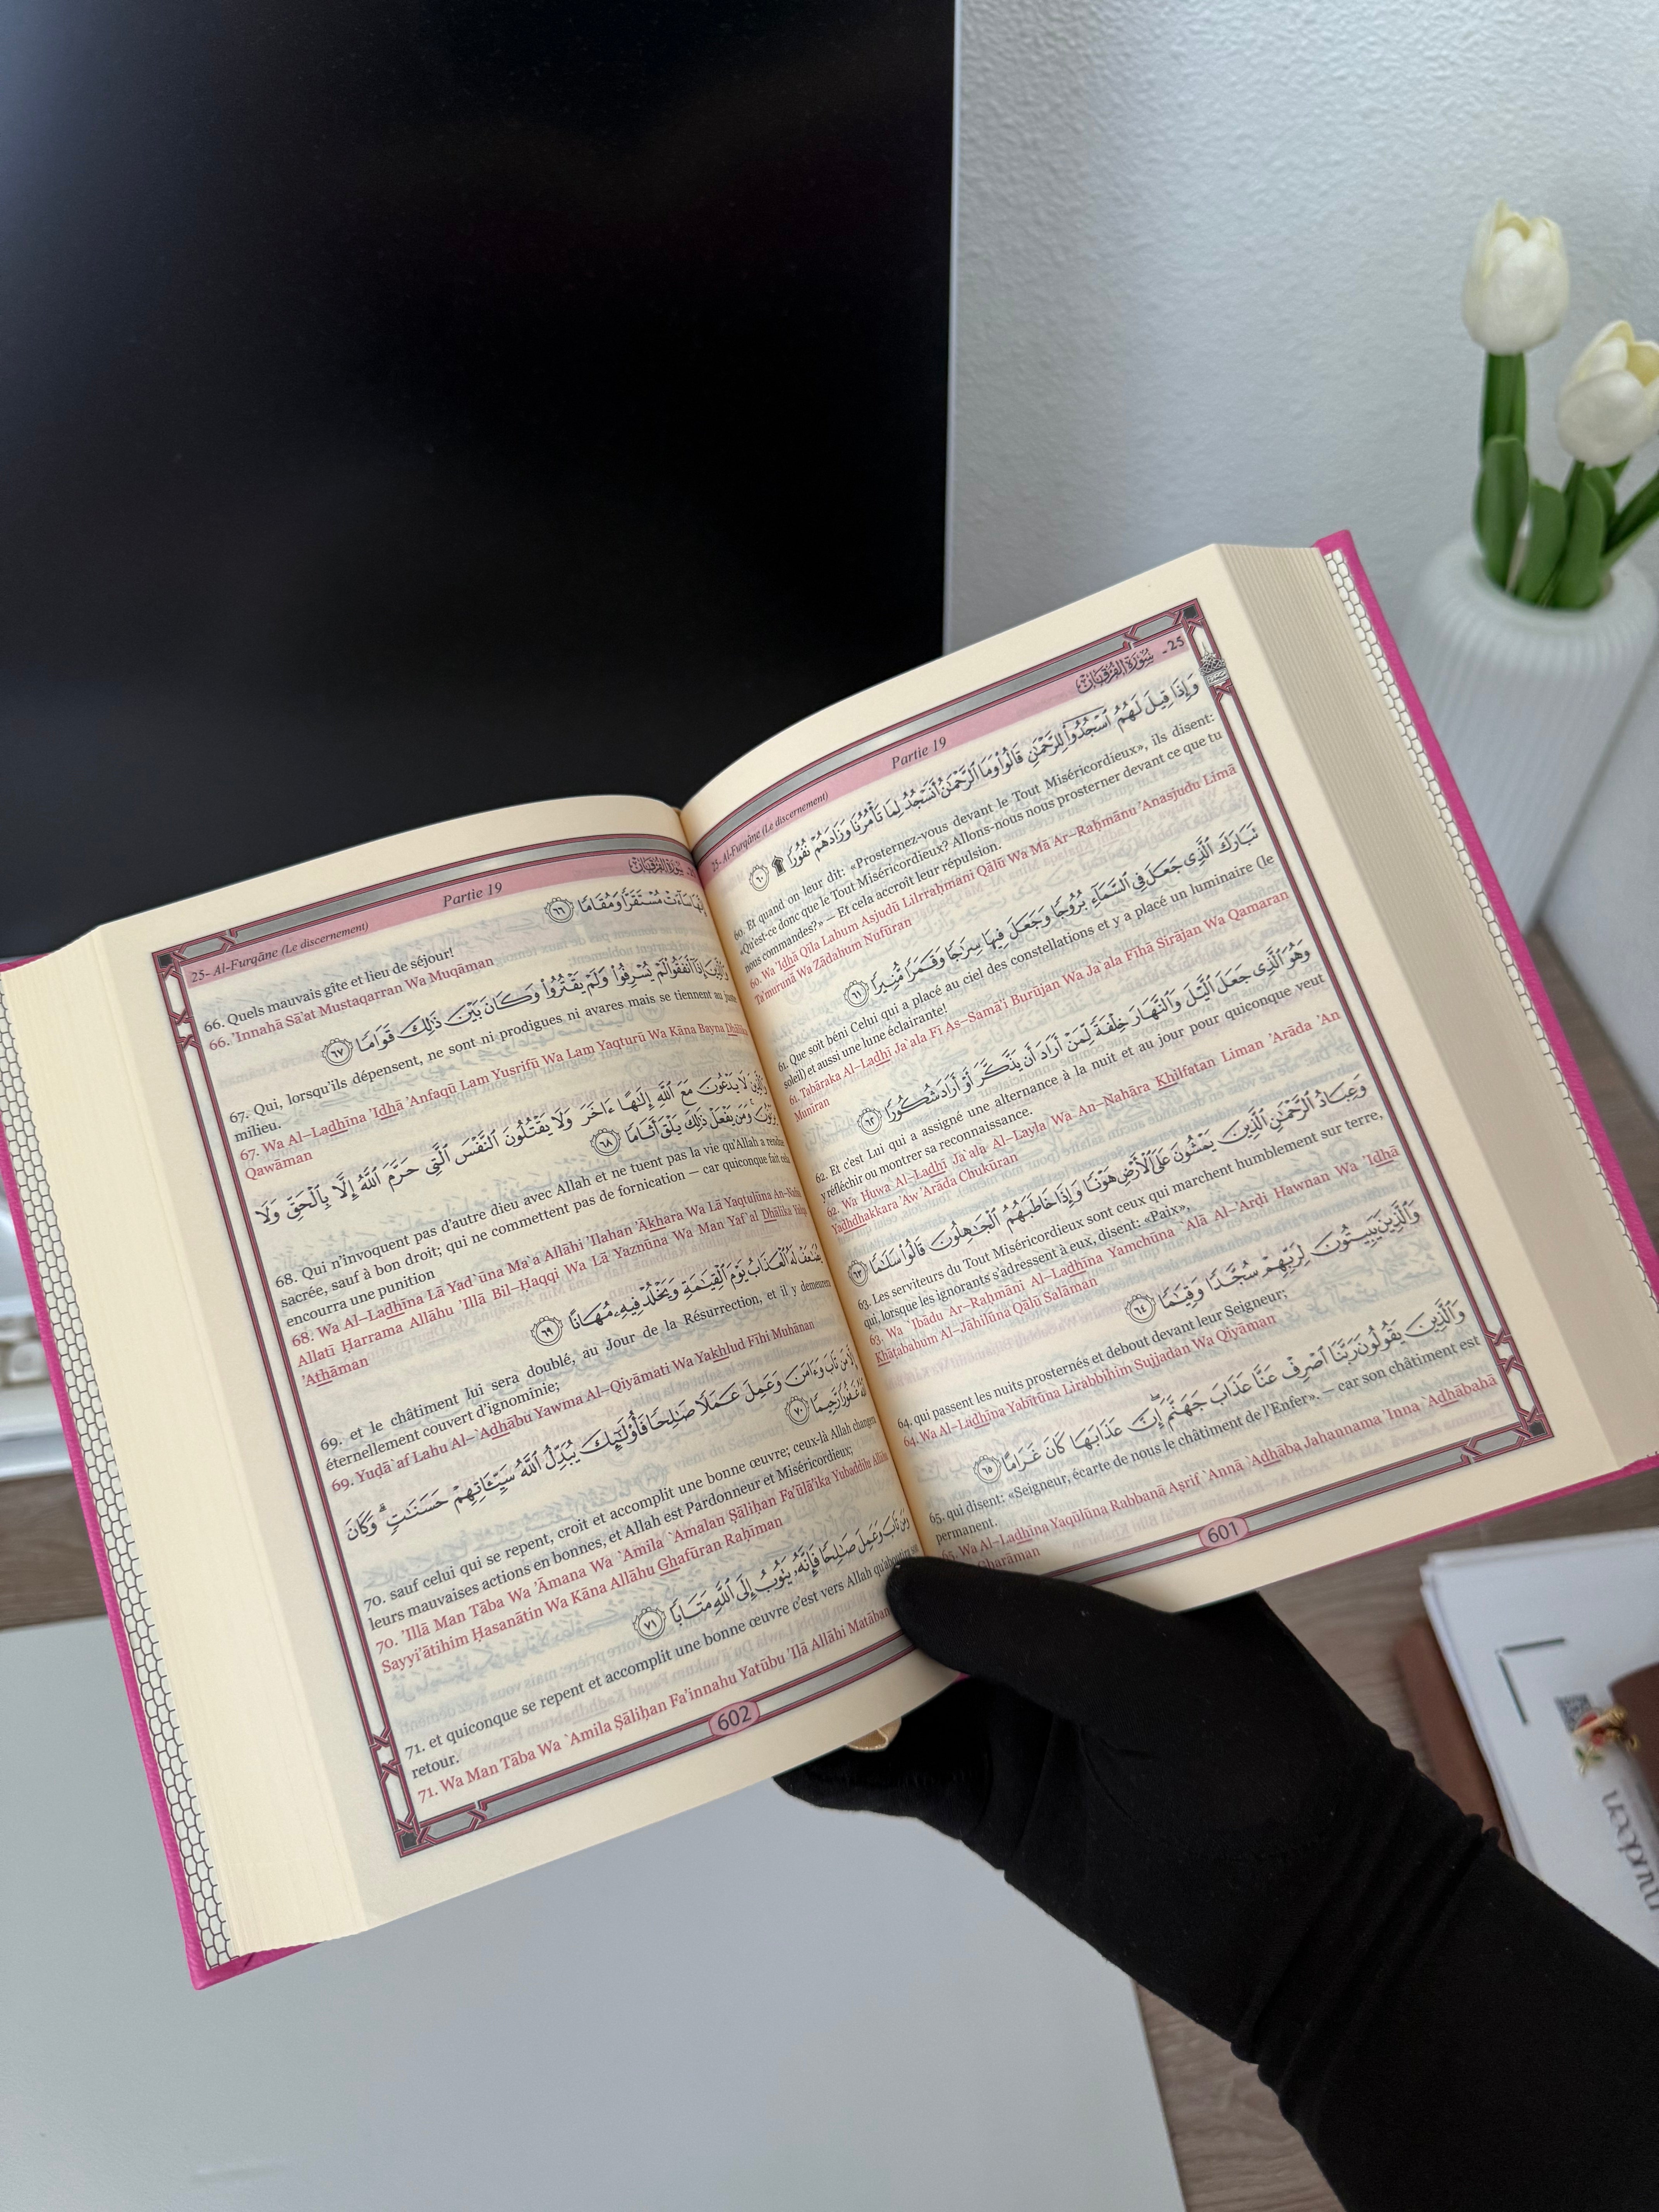 25- Al-Furqâne (Le discernement) Partie 19 سُورَةُ الفُرْقَان - 25
وَإِذَا قِيلَ لَهُمُ ٱسۡجُدُواْ لِلرَّحۡمَٰنِ قَالُواْ وَمَا ٱلرَّحۡمَٰنُ أَنَسۡجُدُ لِمَا تَأۡمُرُنَا وَزَادَهُمۡ نُفُورٗا ۩ ٦٠
60. Et quand on leur dit: «Prosternez-vous devant le Tout Miséricordieux», ils disent:
«Qu'est-ce donc que le Tout Miséricordieux? Allons-nous nous prosterner devant ce que tu
nous commandes?» — Et cela accroît leur répulsion.
60. Wa 'Idhā Qīla Lahum Asjudū Lilrraḥmāni Qālū Wa Mā Ar–Raḥmānu 'Anasjudu Limā
Ta'murunā Wa Zādahum Nufūran
تَبَارَكَ ٱلَّذِي جَعَلَ فِي ٱلسَّمَآءِ بُرُوجٗا وَجَعَلَ فِيهَا سِرَٰجٗا وَقَمَرٗا مُّنِيرٗا ٦١
61. Que soit béni Celui qui a placé au ciel des constellations et y a placé un luminaire (le
soleil) et aussi une lune éclairante!
61. Tabāraka Al–Ladhī Ja`ala Fī As–Samā'i Burūjan Wa Ja`ala Fīhā Sirājan Wa Qamaran
Munīran
وَهُوَ ٱلَّذِي جَعَلَ ٱلَّيۡلَ وَٱلنَّهَارَ خِلۡفَةٗ لِّمَنۡ أَرَادَ أَن يَذَّكَّرَ أَوۡ أَرَادَ شُكُورٗا ٦٢
62. Et c'est Lui qui a assigné une alternance à la nuit et au jour pour quiconque veut
y réfléchir ou montrer sa reconnaissance.
62. Wa Huwa Al–Ladhī Ja`ala Al–Layla Wa An–Nahāra Khilfatan Liman 'Arāda 'An
Yadhdhakkara 'Aw 'Arāda Chukūran
وَعِبَادُ ٱلرَّحۡمَٰنِ ٱلَّذِينَ يَمۡشُونَ عَلَى ٱلۡأَرۡضِ هَوۡنٗا وَإِذَا خَاطَبَهُمُ ٱلۡجَٰهِلُونَ قَالُواْ سَلَٰمٗا ٦٣
63. Les serviteurs du Tout Miséricordieux sont ceux qui marchent humblement sur terre,
qui, lorsque les ignorants s'adressent à eux, disent: «Paix»,
63. Wa `Ibādu Ar–Raḥmāni Al–Ladhīna Yamchūna `Alā Al–Arḍi Hawnan Wa 'Idhā
Khāṭabahum Al–Jāhilūna Qālū Salāmān
وَٱلَّذِينَ يَبِيتُونَ لِرَبِّهِمۡ سُجَّدٗا وَقِيَٰمٗا ٦٤
64. qui passent les nuits prosternés et debout devant leur Seigneur;
64. Wa Al–Ladhīna Yabītūna Lirabbihim Sujjadan Wa Qiyāman
وَٱلَّذِينَ يَقُولُونَ رَبَّنَا ٱصۡرِفۡ عَنَّا عَذَابَ جَهَنَّمَۖ إِنَّ عَذَابَهَا كَانَ غَرَامًا ٦٥
65. qui disent: «Seigneur, écarte de nous le châtiment de l'Enfer». — car son châtiment est
permanent.
65. Wa Al–Ladhīna Yaqūlūna Rabbanā Aṣrif `Annā `Adhāba Jahannama 'Inna `Adhābahā
Gharāman
601
25- Al-Furqâne (Le discernement) Partie 19 سُورَةُ الفُرْقَان
إِنَّهَا سَآءَتۡ مُسۡتَقَرّٗا وَمُقَامٗا ٦٦
66. Quels mauvais gîte et lieu de séjour!
66. 'Innahā Sā'at Mustaqarran Wa Muqāman
وَٱلَّذِينَ إِذَآ أَنفَقُواْ لَمۡ يُسۡرِفُواْ وَلَمۡ يَقۡتُرُواْ وَكَانَ بَيۡنَ ذَٰلِكَ قَوَامٗا ٦٧
67. Qui, lorsqu'ils dépensent, ne sont ni prodigues ni avares mais se tiennent au juste
milieu.
67. Wa Al–Ladhīna 'Idhā 'Anfaqū Lam Yusrifū Wa Lam Yaqturū Wa Kāna Bayna Dhālika
Qawāman
وَٱلَّذِينَ لَا يَدۡعُونَ مَعَ ٱللَّهِ إِلَٰهًا ءَاخَرَ وَلَا يَقۡتُلُونَ ٱلنَّفۡسَ ٱلَّتِي حَرَّمَ ٱللَّهُ إِلَّا بِٱلۡحَقِّ وَلَا
يَزۡنُونَۚ وَمَن يَفۡعَلۡ ذَٰلِكَ يَلۡقَ أَثَامٗا ٦٨
68. Qui n'invoquent pas d'autre dieu avec Allah et ne tuent pas la vie qu'Allah a rendue
sacrée, sauf à bon droit; qui ne commettent pas de fornication — car quiconque fait cela
encourra une punition
68. Wa Al–Ladhīna Lā Yad`ūna Ma`a Allāhi 'Ilahan 'Ākhara Wa Lā Yaqtulūna An–Nafsa
Allatī Ḥarrama Allāhu 'Illā Bil–Ḥaqqi Wa Lā Yaznūna Wa Man Yaf`al Dhālika Yalqa
'Athāman
يُضَٰعَفۡ لَهُ ٱلۡعَذَابُ يَوۡمَ ٱلۡقِيَٰمَةِ وَيَخۡلُدۡ فِيهِۦ مُهَانًا ٦٩
69. et le châtiment lui sera doublé, au Jour de la Résurrection, et il y demeurera
éternellement couvert d'ignominie;
69. Yuḍā`af Lahu Al–`Adhābu Yawma Al–Qiyāmati Wa Yakhlud Fīhi Muhānan
إِلَّا مَن تَابَ وَءَامَنَ وَعَمِلَ عَمَلٗا صَٰلِحٗا فَأُوْلَٰٓئِكَ يُبَدِّلُ ٱللَّهُ سَيِّـَٔاتِهِمۡ حَسَنَٰتٖۗ وَكَانَ
ٱللَّهُ غَفُورٗا رَّحِيمٗا ٧٠
70. sauf celui qui se repent, croit et accomplit une bonne œuvre; ceux-là Allah changera
leurs mauvaises actions en bonnes, et Allah est Pardonneur et Miséricordieux;
70. 'Illā Man Tāba Wa 'Āmana Wa `Amila `Amalan Ṣāliḥan Fa'ūlā'ika Yubaddilu Allāhu
Sayyi'ātihim Ḥasanātin Wa Kāna Allāhu Ghafūran Raḥīman
وَمَن تَابَ وَعَمِلَ صَٰلِحٗا فَإِنَّهُۥ يَتُوبُ إِلَى ٱللَّهِ مَتَابٗا ٧١
71. et quiconque se repent et accomplit une bonne œuvre c'est vers Allah qu'aboutira son
retour.
71. Wa Man Tāba Wa `Amila Ṣāliḥan Fa'innahu Yatūbu 'Ilā Allāhi Matāban
602